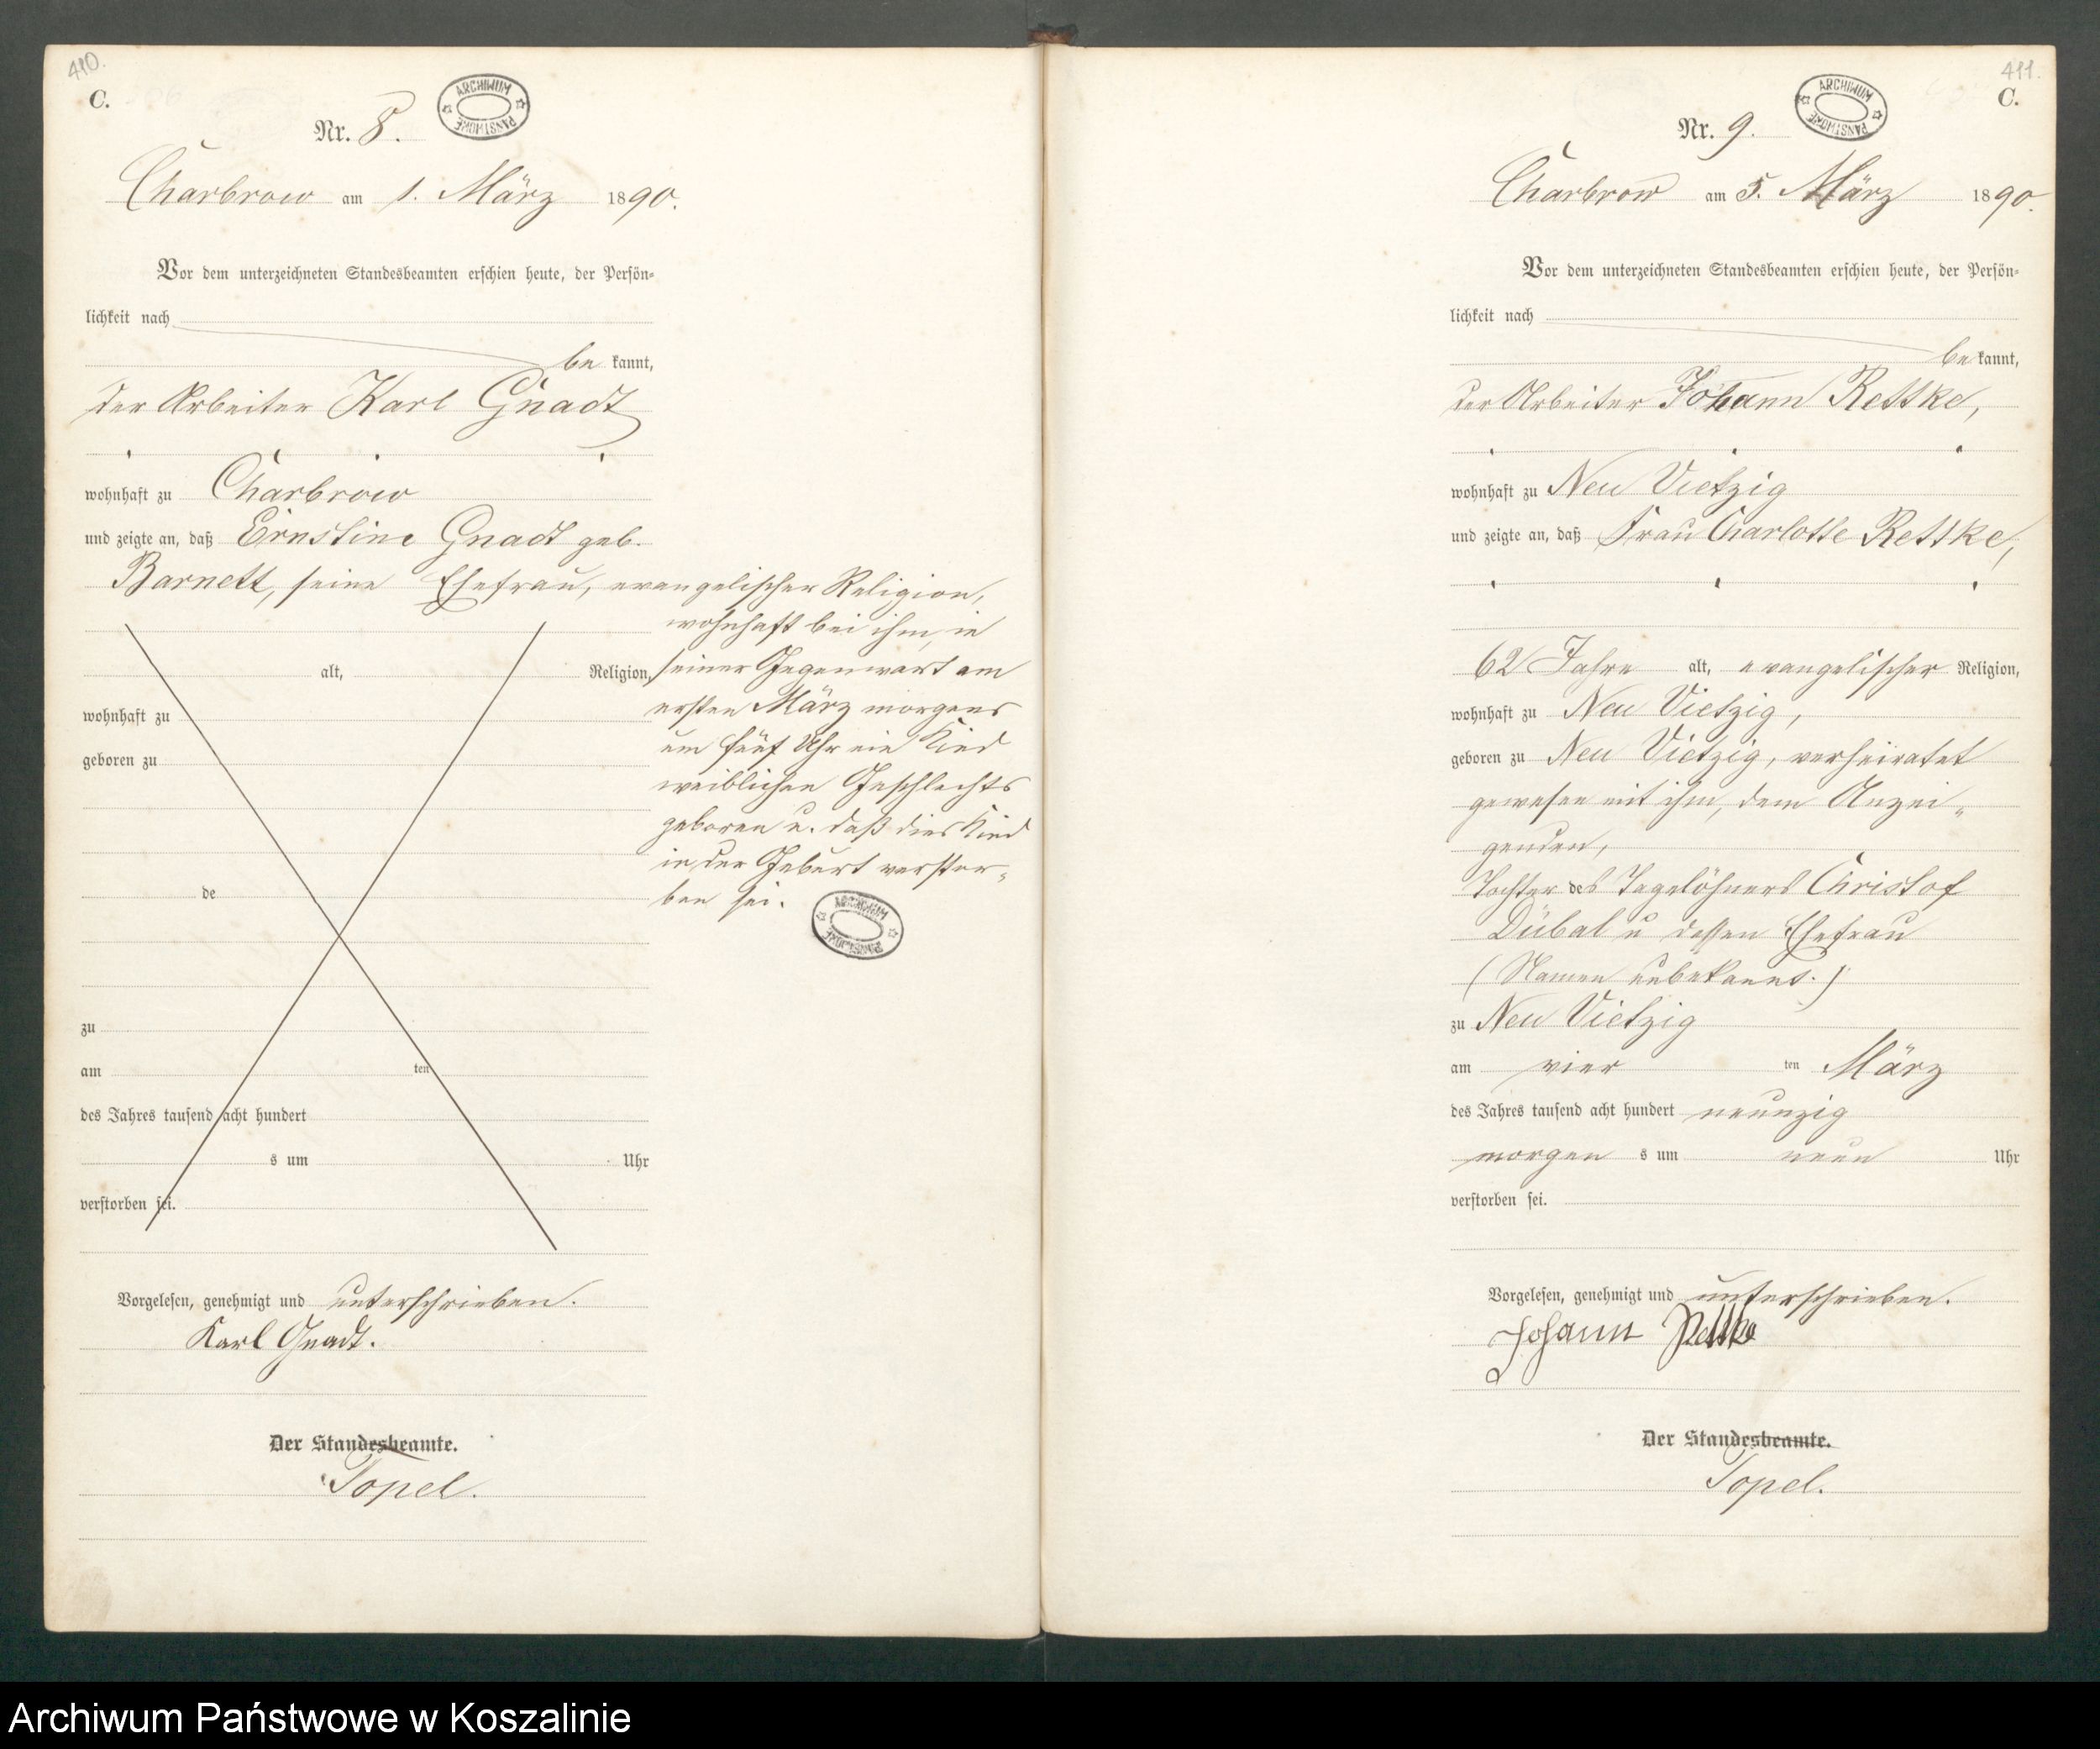 410.
C.
ARCHIWUM PAŃSTWOWE
Nr. 8.
Charbrow am 1. März 1890.
Vor dem unterzeichneten Standesbeamten erschien heute, der Persön-
lichkeit nach
be kannt,
der Arbeiter Karl Gnadt
wohnhaft zu Charbrow
und zeigte an, daß Ernstine Gnadt geb.
Barnett, seine Ehefrau, evangelischer Religion,
wohnhaft bei ihm, in
alt, Religion, seiner Gegenwart am
wohnhaft zu ersten März morgens
um fünf Uhr ein Kind
geboren zu
weiblichen Geschlechts
geboren u. daß dies Kind
in der Geburt verstor-
de ben sei.
ARCHIWUM PAŃSTWOWE
zu
am ten
des Jahres tausend acht hundert
s um Uhr
verstorben sei.
Vorgelesen, genehmigt und unterschrieben.
Karl Gnadt.
Der Standesbeamte.
Topel.
411.
C.
ARCHIWUM PAŃSTWOWE
Nr. 9.
Charbrow am 5. März 1890.
Vor dem unterzeichneten Standesbeamten erschien heute, der Persön-
lichkeit nach
be kannt,
der Arbeiter Johann Rettke,
wohnhaft zu Neu Vietzig
und zeigte an, daß Frau Charlotte Rettke,
62 Jahre alt, evangelischer Religion,
wohnhaft zu Neu Vietzig,
geboren zu Neu Vietzig, verheiratet
gewesen mit ihm, dem Anzei-
genden,
Tochter des Tagelöhners Christof
Dübal u dessen Ehefrau
(Namen unbekannt.)
zu Neu Vietzig
am vier ten März
des Jahres tausend acht hundert neunzig
morgen s um neun Uhr
verstorben sei.
Vorgelesen, genehmigt und unterschrieben.
Johann Rettke
Der Standesbeamte.
Topel.
Archiwum Państwowe w Koszalinie